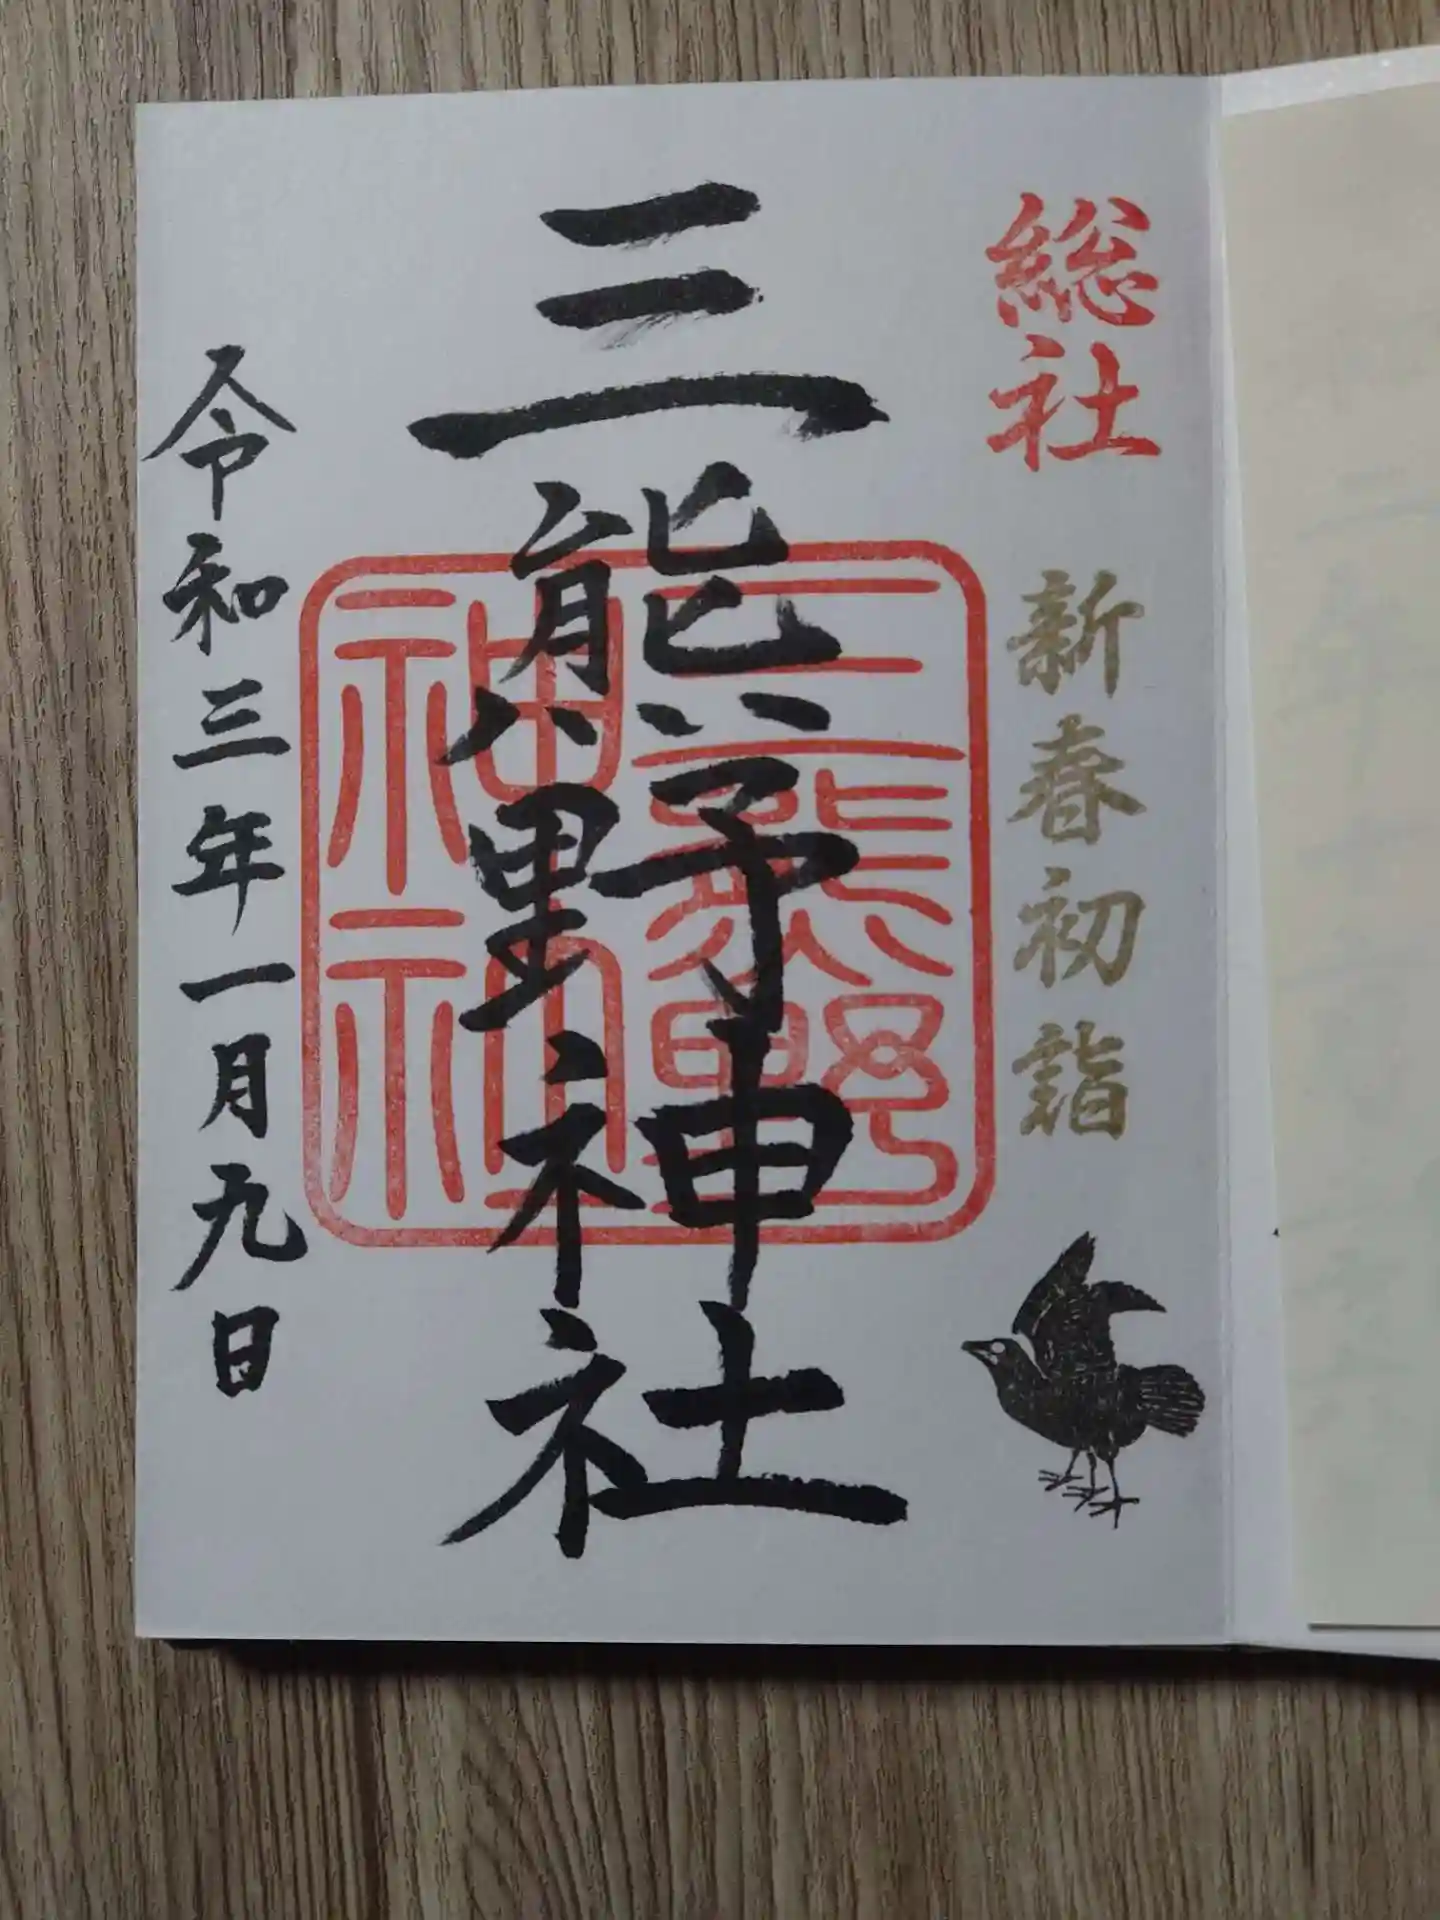 総社
新春初詣
三熊野神社
三熊野神社
令和三年一月九日